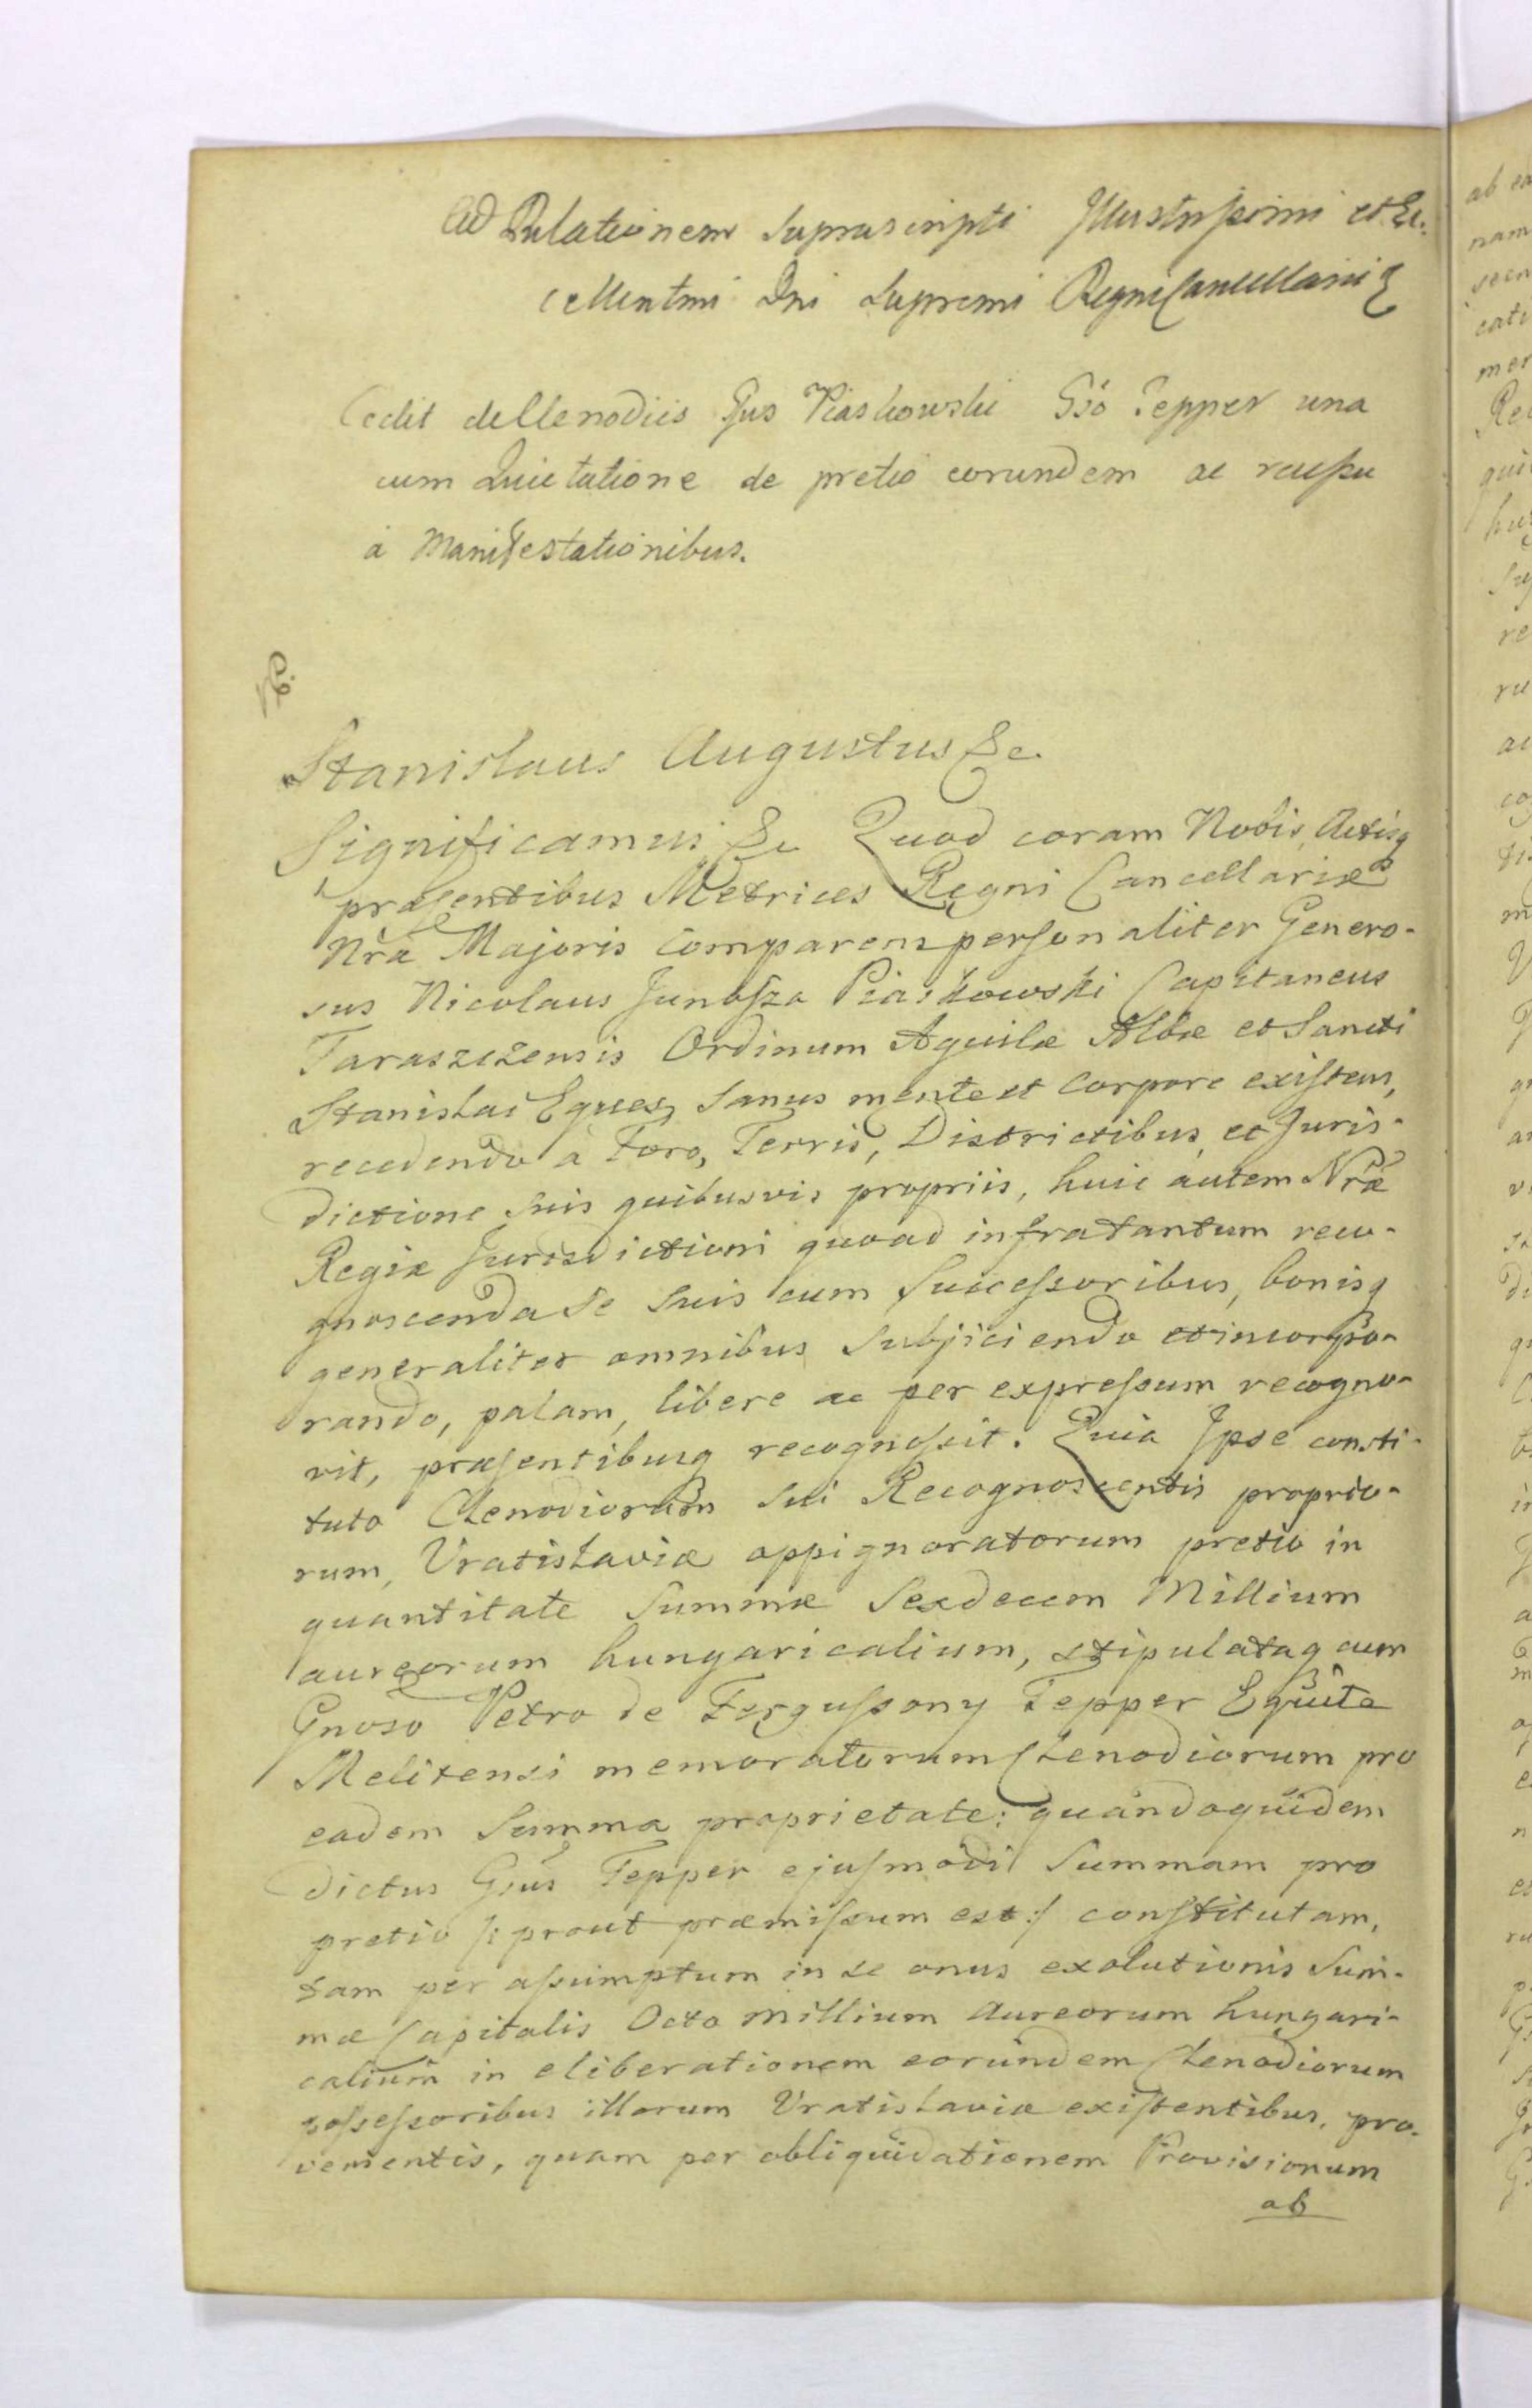 Ad Relationem suprascripti Illustrissimi et Ex-
cellentmi Dni Supremi Regni Cancellarii
Cedit de Clenodiis Gus Piaskowski Gso Tepper una
cum Quietatione de pretio eorundem ac recessu
a Manifestationibus.
Stanislaus Augustus &c
Significamus &c Quod coram Nobis, Actisq
præsentibus Metrices Regni Cancellariæ
Nræ Majoris comparens personaliter Genero-
sus Nicolaus Junosza Piaskowski Capitaneus
Taraszczensis Ordinum Aquilæ Albæ et Sancti
Stanislai Eques, sanus mente et corpore existens,
recedendo a Foro, Terris, Districtibus, et Juris-
dictione suis quibusvis propriis, huic autem Nræ
Regiæ Jurisdictioni quoad infra tantum reco-
gnoscenda se suis cum Successoribus, bonisq
generaliter omnibus subjiciendo et incorpo-
rando, palam, libere ac per expressum recogno-
vit, præsentibusq recognoscit. Quia Ipse consti-
tuto Clenodiorum sui Recognoscentis proprio-
rum, Vratislaviæ oppignoratorum pretio in
quantitate Summæ Sexdecem Millium
aureorum hungaricalium, stipulataq cum
Gnoso Petro de Fergussony Tepper Equite
Melitensi memoratorum Clenodiorum pro
eadem Summa proprietate; quandoquidem
dictus Gsus Tepper ejusmodi Summam pro
pretio /: prout præmissum est :/ constitutam,
tam per assumptum in se onus exolutionis Sum-
mæ Capitalis Octo Millium Aureorum hungari-
calium in eliberationem eorundem Clenodiorum
possessoribus illorum Vratislaviæ existentibus, pro-
venientis, quam per obliquidationem Provisionum
ab